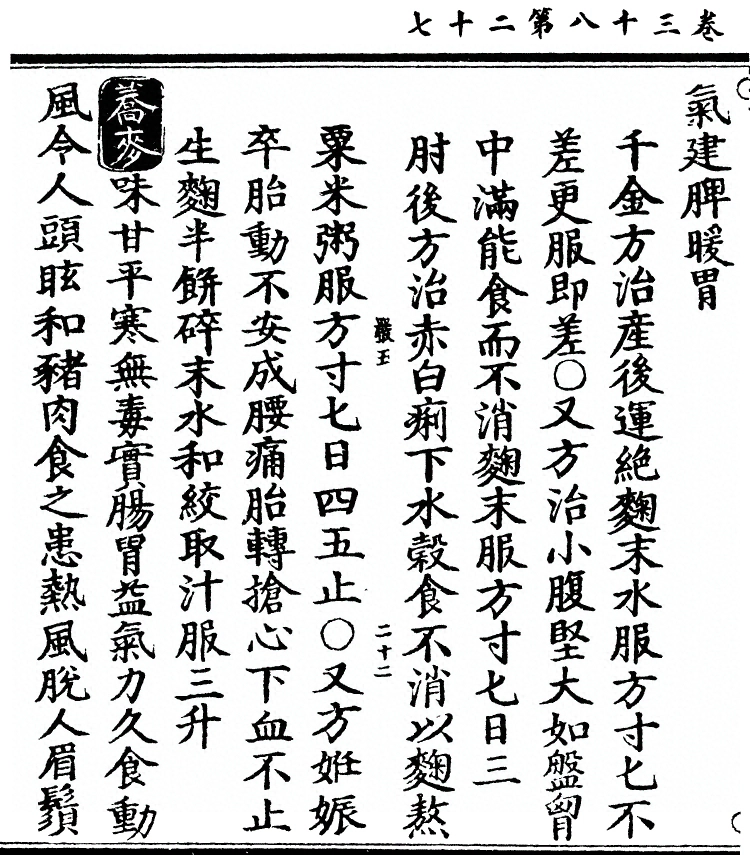 卷三十八第二十七
氣建脾暖胃
千金方治產後運絕麴末水服方寸匕不
差更服即差○又方治小腹堅大如盤胷
中滿能食而不消麴末服方寸匕日三
肘後方治赤白痢下水穀食不消以麴熬
發五
二十二
粟米粥服方寸匕日四五止○又方姙娠
卒胎動不安成腰痛胎轉搶心下血不止
生麴半餅碎末水和絞取汁服三升
蕎麥味甘平寒無毒實腸胃益氣力久食動
風令人頭眩和豬肉食之患熱風脫人眉鬚